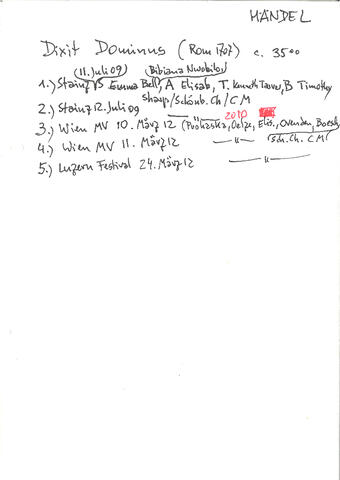 HÄNDEL
Dixit Dominus (Rom 1707) c. 35'00
(11. Juli 09) (Bibiana Nwobilo,)
1.) Stainz S Emma Bell, A Elisab., T. Kenneth Tarver, B Timothy
Sharp/Schönb. Ch/CM
2.) Stainz 12. Juli 09 — " —
2010
3.) Wien MV 10. März 12 (Puchaska, Oelze, Elis., Ovenden, Boesch,
4.) Wien MV 11. März 12 — " — Sch. Ch. CM
5.) Luzern Festival 24. März 12 — " —